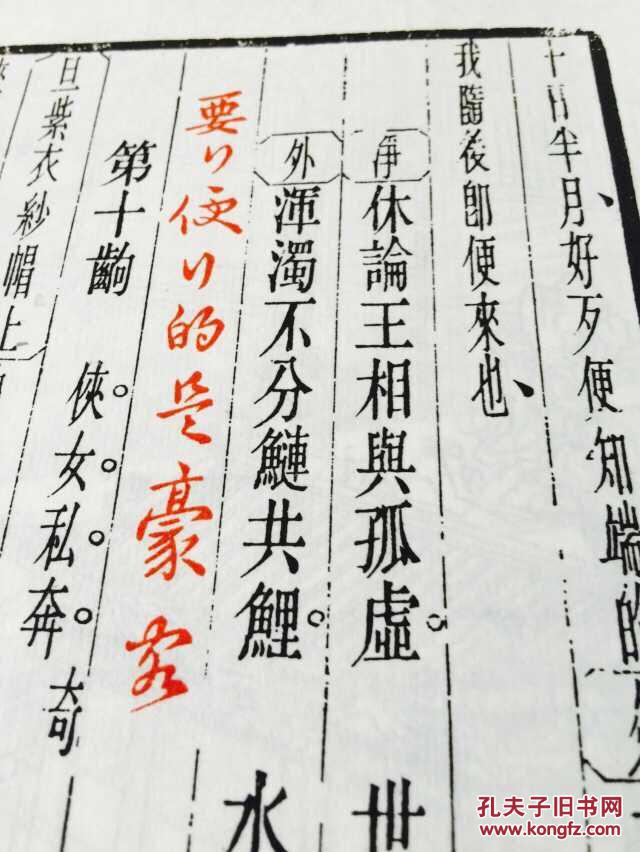 十日半月、好歹便知端的
我隨後即便來也、
淨 休論王相與孤虛。 世
外 渾濁不分鰱共鯉。 水
要〻便〻的是豪客
第十齣 俠。女。私。奔。奇
旦 紫衣紗帽上
孔夫子旧书网
www.kongfz.com